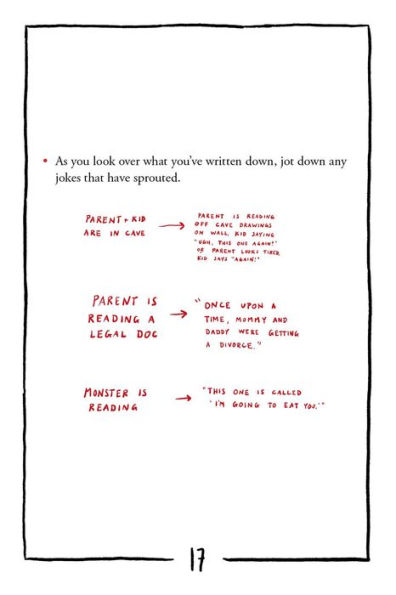 • As you look over what you've written down, jot down any
jokes that have sprouted.
PARENT + KID
ARE IN CAVE
→
PARENT IS READING
OFF CAVE DRAWINGS
ON WALL. KID SAYING
"UGH, THIS ONE AGAIN!"
OR PARENT LOOKS TIRED,
KID SAYS "AGAIN!"
PARENT IS
READING A
LEGAL DOC
→
"ONCE UPON A
TIME, MOMMY AND
DADDY WERE GETTING
A DIVORCE."
MONSTER IS
READING
→
"THIS ONE IS CALLED
'I'M GOING TO EAT YOU.'"
17